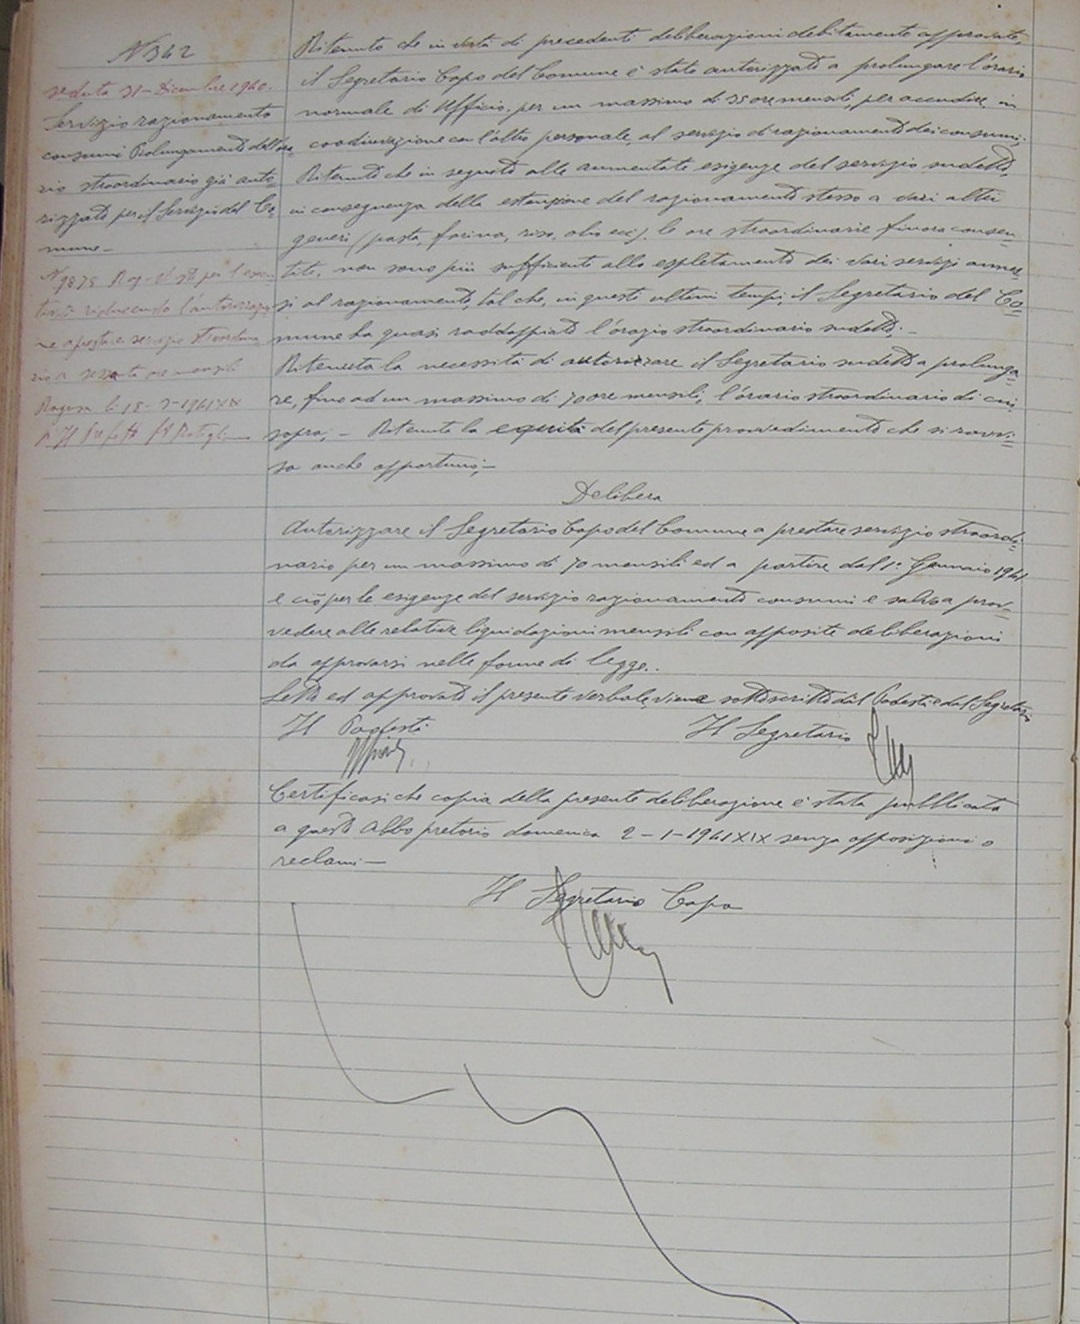 N 342
seduta 31-Dicembre 1940.
Servizio razionamento
consumi Prolungamento dell'ora
rio straordinario già auto-
rizzato per il Servizio del Co
mune-
N 9875 Reg-
riducendo l'autorizzazio
ne a prestare servizio straordina
rio a sessanta ore mensili
Ragusa li 18-3-1941 XIX
Il Prefetto
Ritenuto che in virtù di precedenti deliberazioni debitamente approvate,
il Segretario Capo del Comune è stato autorizzato a prolungare l'orario
normale di Ufficio, per un massimo di 35 ore mensili, per accudire, in
coodiuvazione con l'altro personale, al servizio di razionamento dei consumi;
Ritenuto che in seguito alle aumentate esigenze del servizio sudetto,
in conseguenza della estenzione del razionamento stesso a vari altri
generi (pasta, farina, riso, olio ecc). le ore straordinarie finora consen-
tite, non sono più sufficienti allo espletamento dei vari servizi annes-
si al razionamento, tal che, in questi ultimi tempi, il Segretario del Co-
mune ha quasi raddoppiato l'orario straordinario sudetto;-
Ritenuta la necessità di autorizzare il Segretario sudetto a prolunga-
re, fino ad un massimo di 70 ore mensili, l'orario straordinario di cui
sopra;- Ritenuta la equità del presente provvedimento che si ravvi-
sa anche opportuno;-
Delibera
Autorizzare il Segretario Capo del Comune a prestare servizio straordi-
nario per un massimo di 70 mensili ed a partire dal 1° Gennaio 1941
e ciò per le esigenze del servizio razionamento consumi e salvo a prov-
vedere alle relative liquidazioni mensili con apposite deliberazioni
da approvarsi nelle forme di legge.
Letto ed approvato il presente verbale, viene sottoscritto dal Podestà e dal Segretario
Il Podestà Il Segretario
Certificasi che copia della presente deliberazione è stata pubblicata
a questo Albo pretorio domenica 2-1-1941 XIX senza opposizioni o
reclami-
Il Segretario Capo